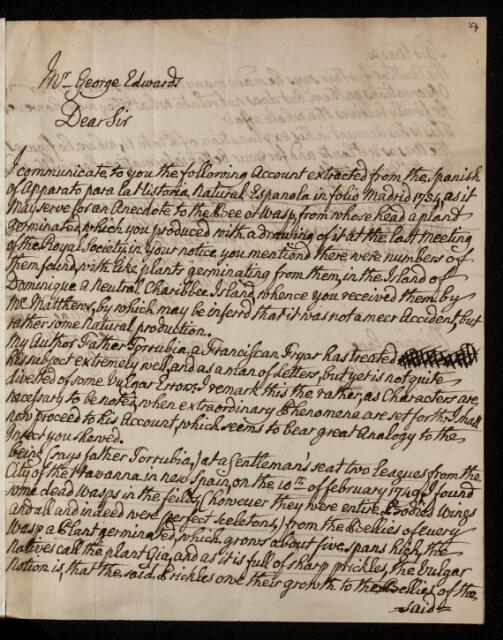 54
Mr. George Edwards
Dear Sir
I communicate to you the following Account extracted from the Spanish
of Apparato para la Historia Natural Espanola in folio Madrid 1754, as it
may serve for an Anecdote to the Bee or Wasp, from whose head a plant
germinated, which you produced with a drawing of it at the last Meeting
of the Royal Society, in your notice, you mentiond there were numbers of
them found, with like plants germinating from them, in the Island of
Dominique a Neutral Charibbee Island, whence you received them by
Mr. Matthews, by which may be inferd that it was not a meer Accident, but
rather some natural production.
My Author Father Torrubia, a Franciscan Fryar has treated
his subject extremely well, and as a man of Letters, but yet is not quite
divested of some Vulgar Errors; I remark this the rather, as Characters are,
necessary to be noted, when extraordinary Phenomena are set forth; I shall
now proceed to his Account, which seems to bear great Analogy to the
Insect you shewed.
being (says father Torrubia,) at a Gentleman's seat two Leagues from the
City of the Havanna in new Spain, on the 10th of february 1749, I found
some dead wasps in the feilds, (however they were entire, Bodies Wings
and all and indeed were perfect sceletons,) from the Bellies of every
Wasp a Plant germinated, which grows about five spans high, the
natives call the plant Gia, and as it is full of sharp prickles, the Vulgar
notion is, that the said Prickles owe their growth to the Bellies of the
said